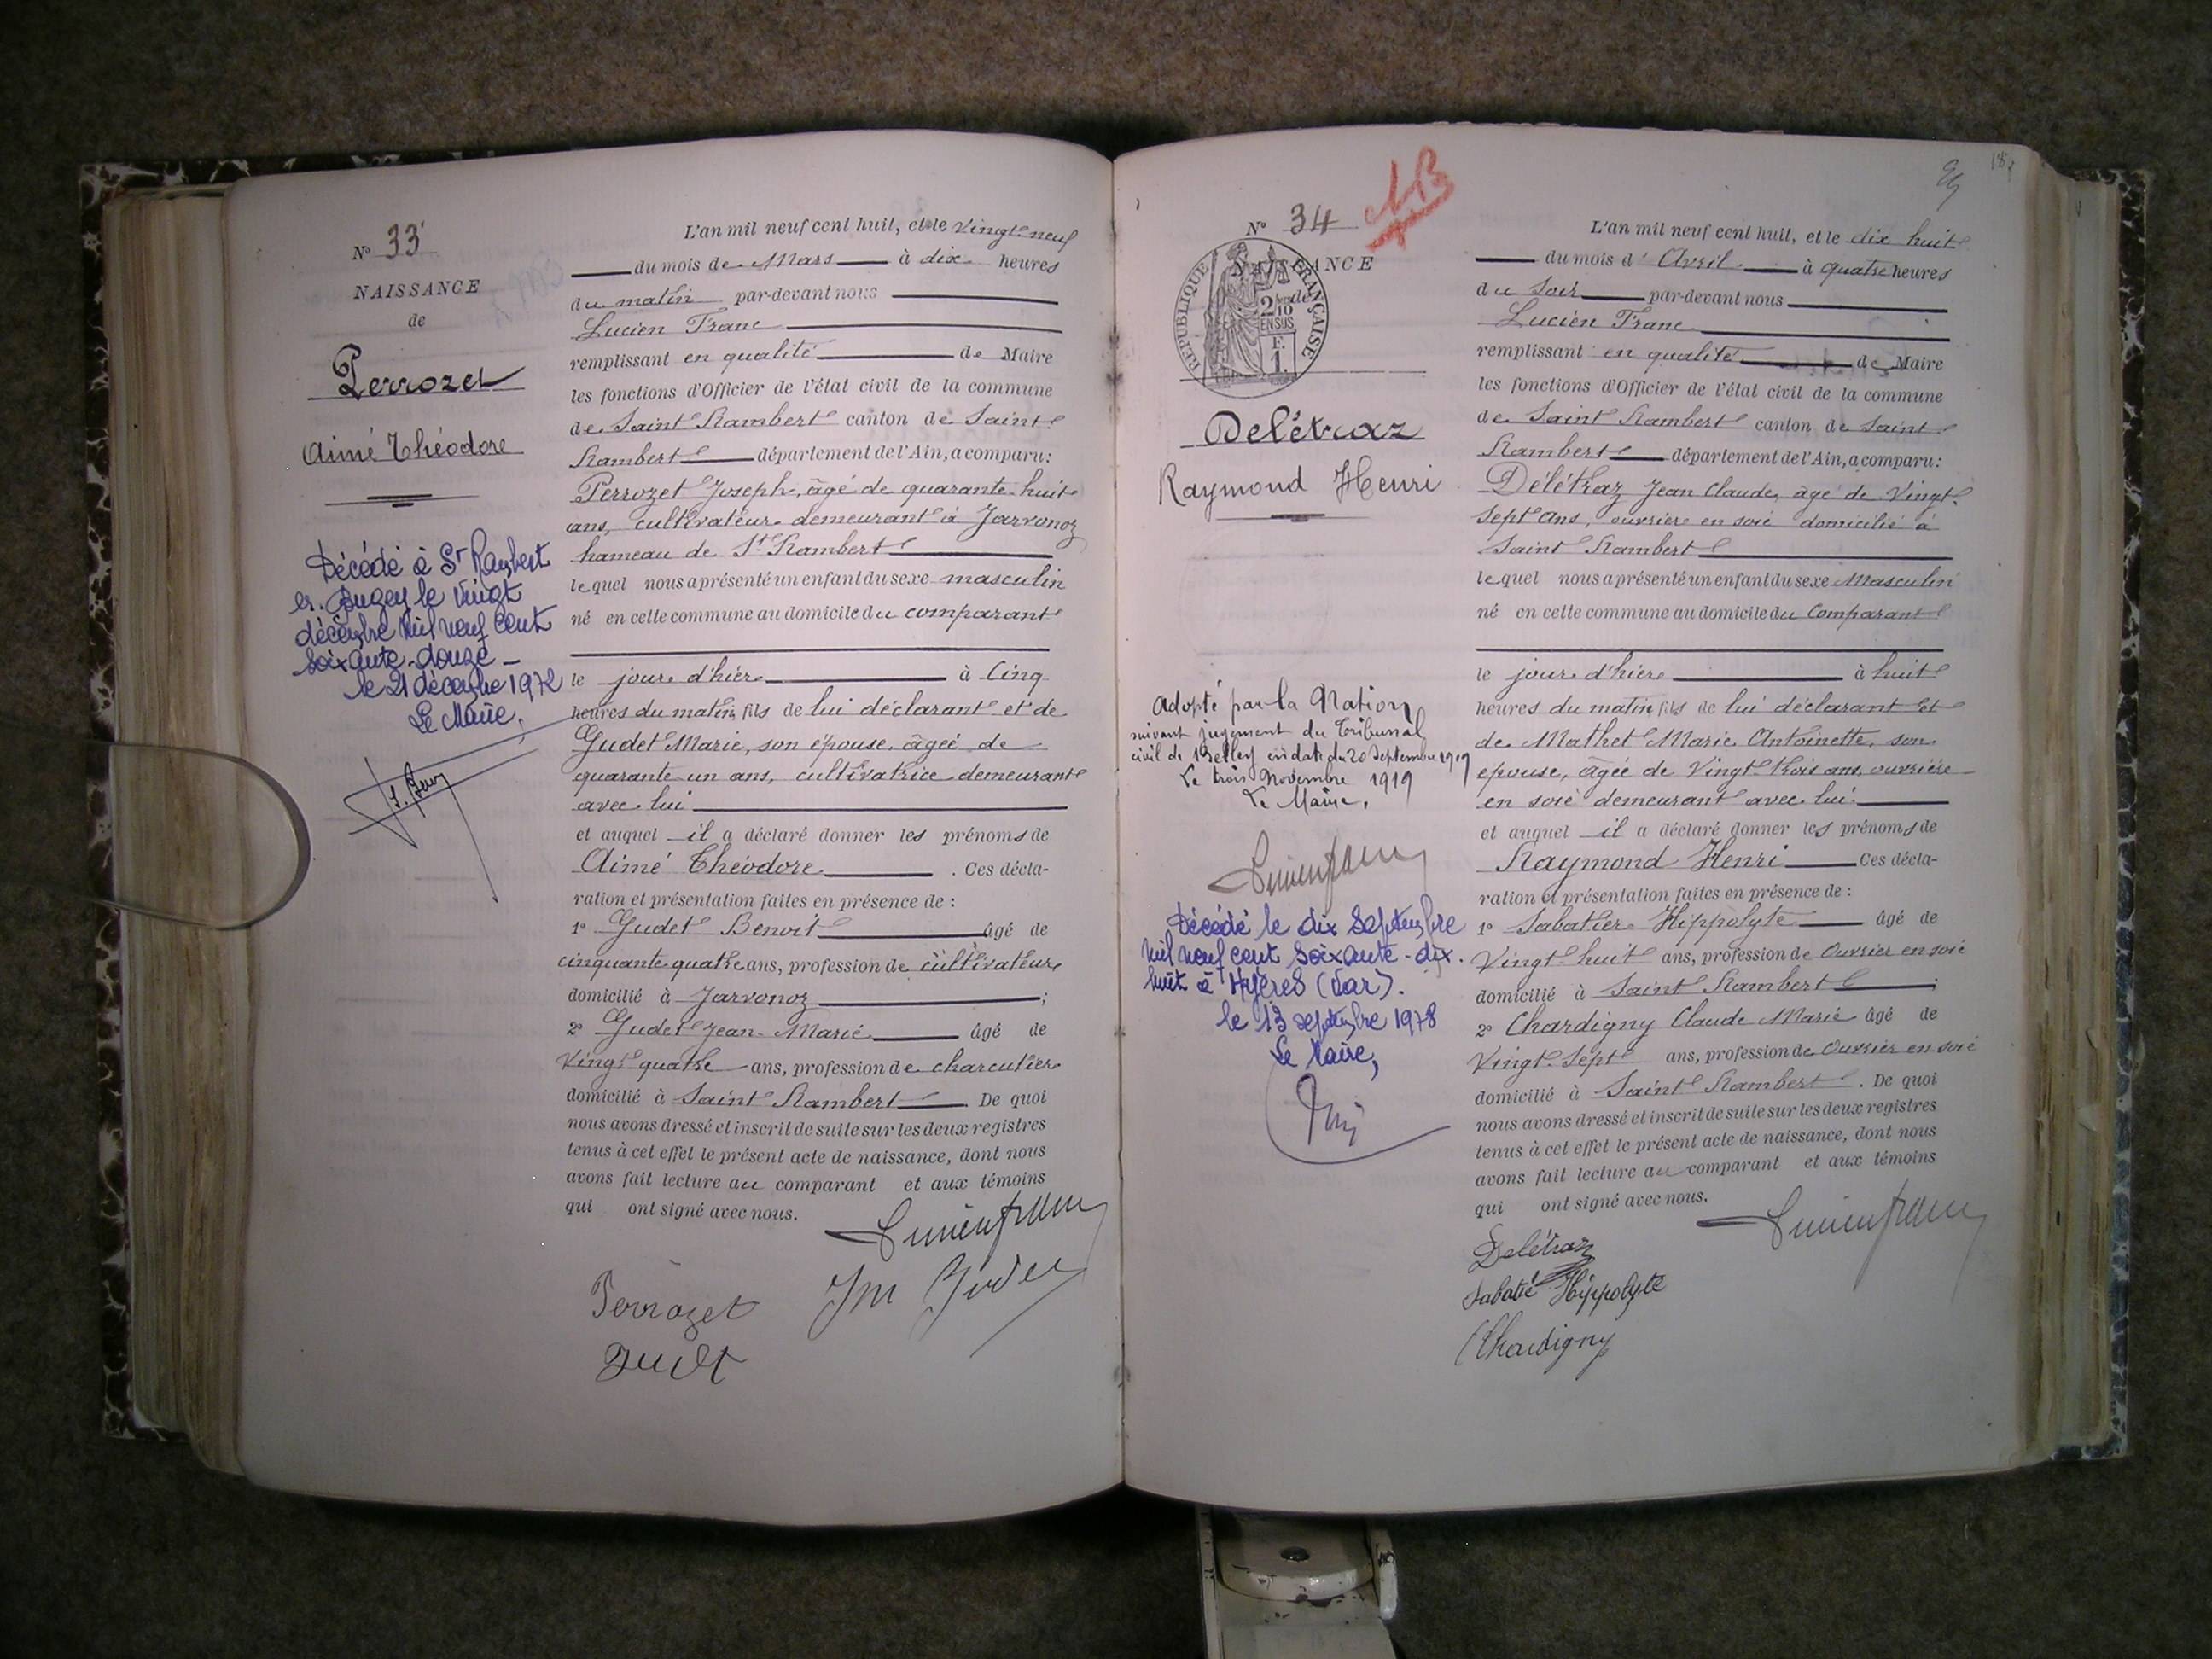 N° 33
NAISSANCE
de
Perrozet
Aimé Théodore
Décédé à St Rambert
en Bugey le vingt
décembre mil neuf cent
soixante-douze
le 21 décembre 1972
Le Maire,
L'an mil neuf cent huit, et le vingt neuf
du mois de Mars à dix heures
du matin par-devant nous
Lucien Franc
remplissant en qualité de Maire
les fonctions d'Officier de l'état civil de la commune
de Saint Rambert canton de Saint
Rambert département de l'Ain, a comparu:
Perrozet Joseph, âgé de quarante-huit
ans, cultivateur demeurant à Javornoz
hameau de St Rambert
lequel nous a présenté un enfant du sexe masculin
né en cette commune au domicile du comparant
le jour d'hier à cinq
heures du matin, fils de lui déclarant et de
Gudet Marie, son épouse, âgée de
quarante un ans, cultivatrice demeurant
avec lui
et auquel il a déclaré donner les prénoms de
Aimé Théodore. Ces décla-
ration et présentation faites en présence de :
1° Gudet Benoit âgé de
cinquante quatre ans, profession de cultivateur
domicilié à Javornoz ;
2° Gudet Jean-Marie âgé de
vingt quatre ans, profession de charcutier
domicilié à Saint Rambert. De quoi
nous avons dressé et inscrit de suite sur les deux registres
tenus à cet effet le présent acte de naissance, dont nous
avons fait lecture au comparant et aux témoins
qui ont signé avec nous.
Lucien Franc
Perrozet JM Gudet
Gudet
N° 34
NAISSANCE
REPUBLIQUE FRANÇAISE
2/10 de
EN SUS
F.
1.
Delétraz
Raymond Henri
Adopté par la Nation
suivant jugement du Tribunal
civil de Belley en date du 20 Septembre 1919
Le trois Novembre 1919
Le Maire,
Lucien Franc
Décédé le dix septembre
mil neuf cent soixante-dix-
huit à Hyères (Var).
le 13 septembre 1978
Le Maire,
L'an mil neuf cent huit, et le dix huit
du mois d'Avril à quatre heures
du soir par-devant nous
Lucien Franc
remplissant en qualité de Maire
les fonctions d'Officier de l'état civil de la commune
de Saint Rambert canton de Saint
Rambert département de l'Ain, a comparu:
Délétraz Jean Claude, âgé de vingt
sept ans, ouvrier en soie domicilié à
Saint Rambert
lequel nous a présenté un enfant du sexe Masculin
né en cette commune au domicile du Comparant
le jour d'hier à huit
heures du matin, fils de lui déclarant et
de Mathet Marie Antoinette, son
épouse, âgée de vingt trois ans, ouvrière
en soie demeurant avec lui.
et auquel il a déclaré donner les prénoms de
Raymond Henri Ces décla-
ration et présentation faites en présence de :
1° Sabatier Hippolyte âgé de
vingt huit ans, profession de ouvrier en soie
domicilié à Saint Rambert ;
2° Chardigny Claude Marie âgé de
vingt-sept ans, profession de ouvrier en soie
domicilié à Saint Rambert. De quoi
nous avons dressé et inscrit de suite sur les deux registres
tenus à cet effet le présent acte de naissance, dont nous
avons fait lecture au comparant et aux témoins
qui ont signé avec nous.
Lucien Franc
Delétraz
Sabatié Hippolyte
Chardigny